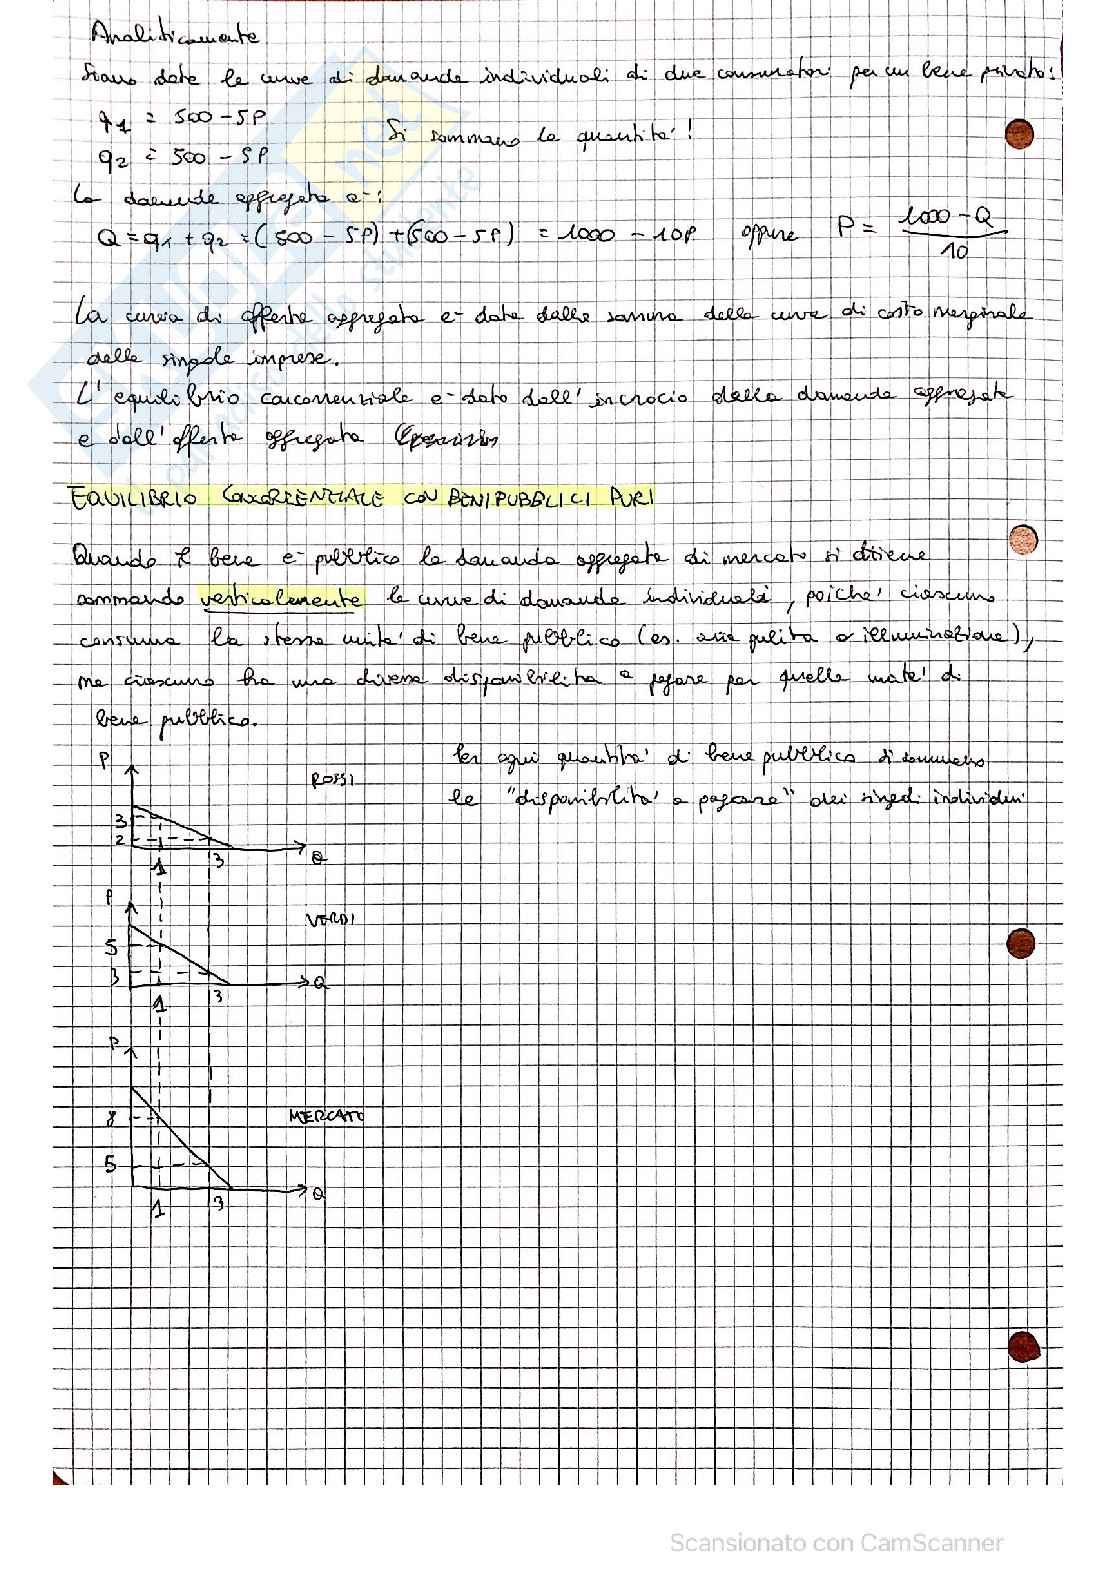 Analiticamente
Siano date le curve di domanda individuali di due consumatori per un bene privato:
q1 = 500 - 5P
Si sommano le quantità!
q2 = 500 - 5P
La domanda aggregata è:
Q = q1 + q2 = (500 - 5P) + (500 - 5P) = 1000 - 10P oppure P = (1000 - Q) / 10
La curva di offerta aggregata è data dalla somma delle curve di costo marginale
delle singole imprese.
L'equilibrio concorrenziale è dato dall'incrocio della domanda aggregata
e dall'offerta aggregata
EQUILIBRIO CONCORRENZIALE CON BENI PUBBLICI PURI
Quando il bene è pubblico la domanda aggregata di mercato si ottiene
sommando verticalmente le curve di domanda individuali, poiché ciascuno
consuma la stessa unità di bene pubblico (es. aria pulita o illuminazione),
ma ciascuno ha una diversa disponibilità a pagare per quelle unità di
bene pubblico.
Per ogni quantità di bene pubblico si sommano
le "disponibilità a pagare" dei singoli individui
P
ROSSI
3
2
1
3
Q
P
VERDI
5
3
1
3
Q
P
MERCATO
8
5
1
3
Q
Scansionato con CamScanner